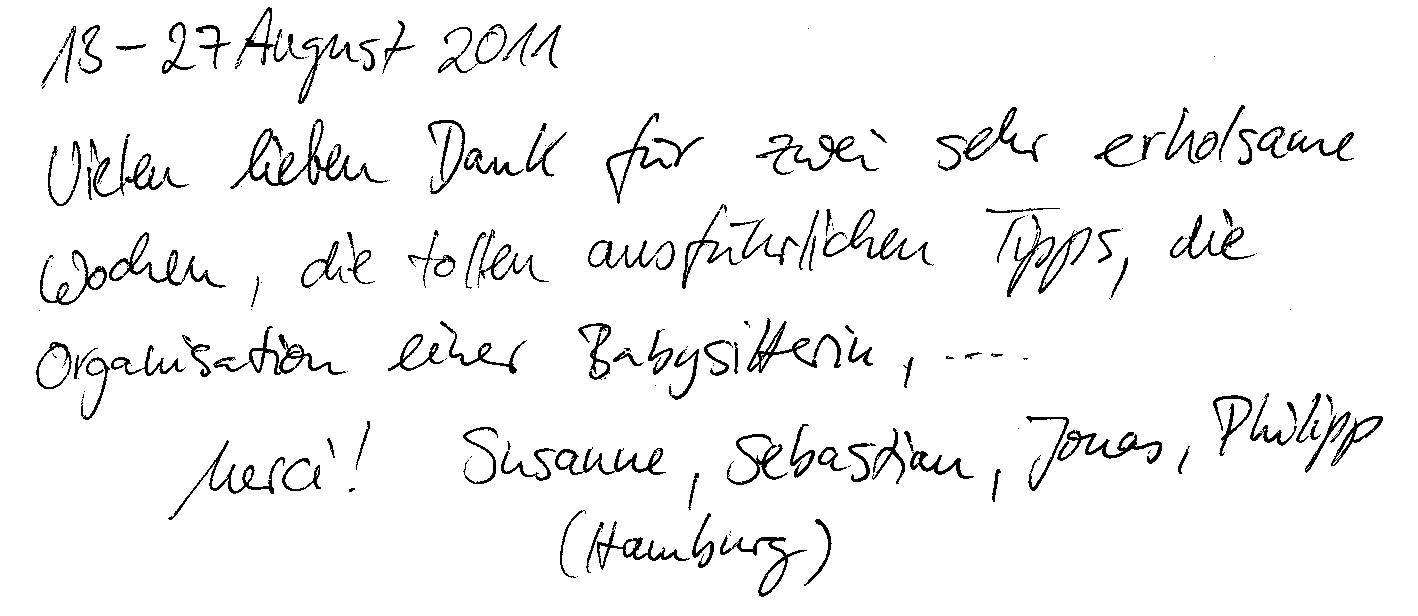 13 - 27 August 2011
Vielen lieben Dank für zwei sehr erholsame
Wochen, die tollen ausführlichen Tipps, die
Organisation einer Babysitterin, ....
Merci! Susanne, Sebastian, Jonas, Philipp
(Hamburg)